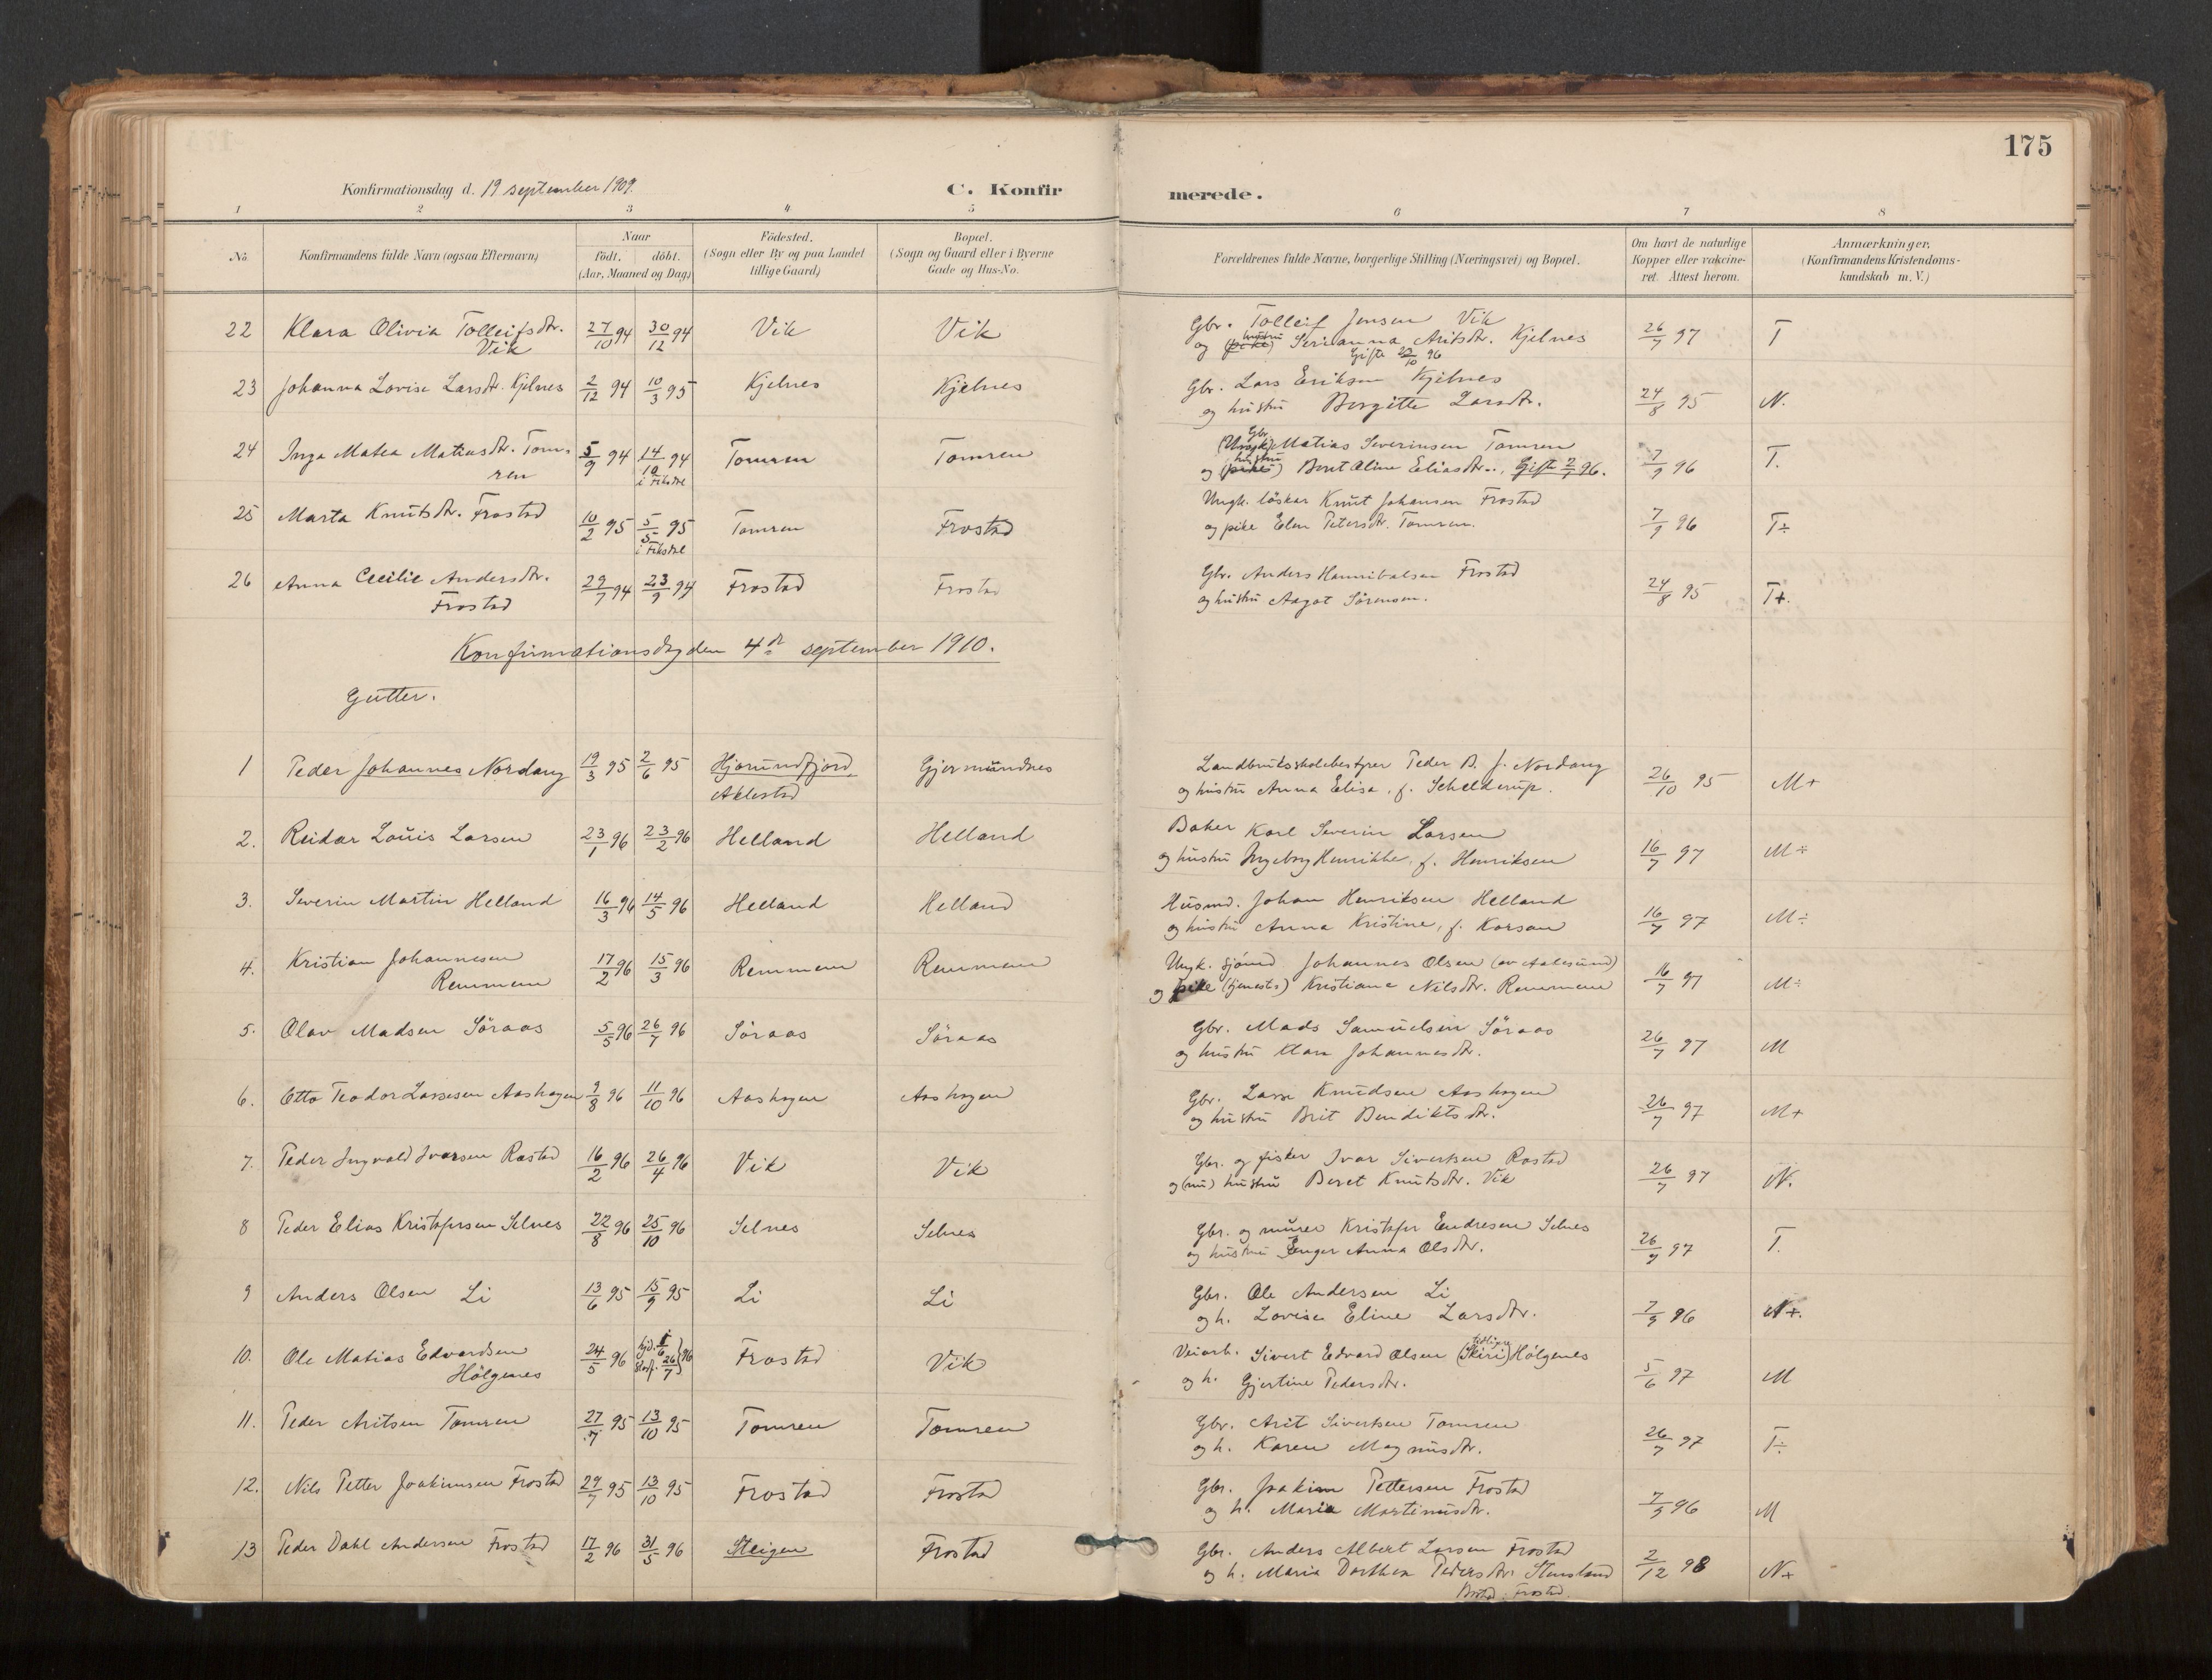 175
Konfirmationsdag d. 19 september 1909.
C. Konfirmerede.
1 2 3 4 5 6 7 8
No. Konfirmandens fulde Navn (ogsaa Efternavn) Naar födt. döbt. (Aar, Maaned og Dag) Födested. (Sogn eller By og paa Landet tillige Gaard) Bopæl. (Sogn og Gaard eller i Byerne Gade og Hus-No. Forældrenes fulde Navne, borgerlige Stilling (Næringsvei) og Bopæl. Om havt de naturlige Kopper eller vakcineret. Attest herom. Anmærkninger. (Konfirmandens Kristendomskundskab m. V.)
22 Klara Olivia Tolleifsdtr. Vik 27/10 94 30/12 94 Vik Vik Gbr. Tolleif Jensen Vik
og (pike) hustru Serianna Aritsdtr. Kjelnes 26/7 97 T
Gifte 22/10 96
23 Johanna Lovise Larsdtr. Kjelnes 2/12 94 10/3 95 Kjelnes Kjelnes Gbr. Lars Eriksen Kjelnes
og hustru Bergitte Larsdtr. 24/8 95 N.
24 Inga Matea Matiasdtr. Tomren 5/9 94 14/10 94 i Fiksdal Tomren Tomren Gbr (Ungk.) Matias Severinsen Tomren
og (pike) hustru Beret Aline Eliasdtr., Gifte 2/1 96. 7/9 96 T.
25 Marta Knutsdtr. Frostad 10/2 95 5/5 95 i Fiksdal Tomren Frostad Ungk. löskar Knut Johansen Frostad
og pike Elen Petersdtr. Tomren. 7/9 96 T÷
26 Anna Cecilie Andersdtr. Frostad 29/7 94 23/9 94 Frostad Frostad Gbr. Anders Hannibalsen Frostad
og hustru Aagot Sörensen. 24/8 95 T+.
Konfirmationsdag den 4de september 1910.
Gutter.
1 Peder Johannes Nordang 19/3 95 2/6 95 Hjørundfjord, Aklestad Gjermundnes Landbruksskolebestyrer Peder B. J. Nordang
og hustru Anna Elisa, f. Schelderup. 26/10 95 M+
2. Reidar Louis Larsen 23/1 96 23/2 96 Helland Helland Baker Karl Severin Larsen
og hustru Ingeborg Henrikke, f. Henriksen 16/7 97 M÷
3. Severin Martin Helland 16/3 96 14/5 96 Helland Helland Husmd. Johan Henriksen Helland
og hustru Anna Kristine, f. Korsan 16/7 97 M÷
4. Kristian Johannesen Remmem 17/2 96 15/3 96 Remmem Remmem Ungk. sjömd Johannes Olsen (av Aalesund)
og pike (tjenests) Kristiane Nilsdtr. Remmem 16/7 97 M÷
5. Olav Madsen Söraas 5/5 96 26/7 96 Söraas Söraas Gbr. Mads Samuelsen Söraas
og hustru Klara Johannesdtr. 26/7 97 M
6. Otto Teodor Larsesen Aashagen 9/8 96 11/10 96 Aashagen Aashagen Gbr. Lars Knudsen Aashagen
og hustru Brit Bendiktsdtr. 26/7 97 M+
7. Peder Ingvald Ivarsen Rastad 16/2 96 26/4 96 Vik Vik Gbr. og fisker Ivar Sivertsen Rastad
og (nu) hustru Beret Knutsdtr. Vik 26/7 97 N.
8 Peder Elias Kristofersen Selnes 22/8 96 25/10 96 Selnes Selnes Gbr. og murer Kristofer Endresen Selnes
og hustru Inger Anna Olsdtr. 26/7 97 T.
9 Anders Olsen Li 13/6 95 15/9 95 Li Li Gbr. Ole Andersen Li
og h. Lovise Eline Larsdtr. 7/9 96 N+.
10. Ole Matias Edvardsen Hölgenes 24/5 96 hjd. 1/6 Stadf. 26/7 96 Frostad Vik Veiarb. Sivert Edvard Olsen (tidligere Skiri) Hölgenes
og h. Gjertine Pedersdtr. 5/6 97 M
11. Peder Aritsen Tomren 27/7 95 13/10 95 Tomren Tomren Gbr. Arit Sivertsen Tomren
og h. Karen Magnusdtr. 26/7 97 T÷
12. Nils Petter Joakimsen Frostad 29/7 95 13/10 95 Frostad Frostad Gbr. Joakim Pettersen Frostad
og h. Maria Martinusdtr. 7/9 96 M
13 Peder Dahl Andersen Frostad 17/2 96 31/5 96 Steigen Frostad Gbr. Anders Albert Larsen Frostad
og h. Maria Dorthea Pedersdtr. Stensland 2/12 98 N+
Bosted: Frostad.